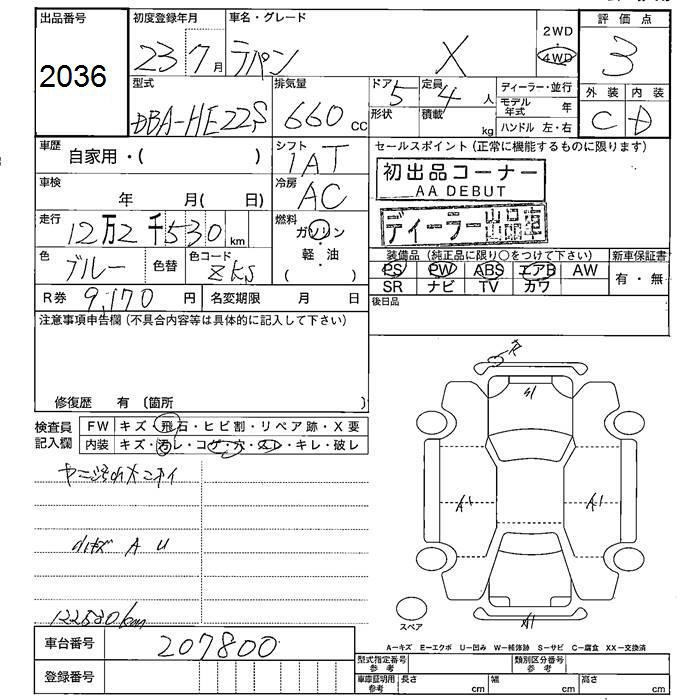 出品番号
2036
初度登録年月
23 7月
車名・グレード
ラパン X
2WD
4WD
評価点
3
型式
DBA-HE22S
排気量
660 cc
ドア 5
形状
定員 4 人
積載 kg
ディーラー・並行
モデル年式 年
ハンドル 左・右
外装 内装
C D
車歴
自家用・( )
シフト
IAT
セールスポイント(正常に機能するものに限ります)
初出品コーナー
AA DEBUT
ディーラー出品車
車検
年 月( 日)
冷房
AC
走行
12万2千530km
燃料
ガソリン
・
軽・油
( )
色
ブルー
色替
色コード
ZKS
装備品(純正品に限り○をつけて下さい)
新車保証書
PS PW ABS エアB AW
SR ナビ TV カワ
有・無
R券 9,170 円
名変期限 月 日
後日品
注意事項申告欄(不具合内容等は具体的に記入して下さい)
修復歴 有 〔箇所 〕
検査員記入欄
FW キズ・飛石・ヒビ割・リペア跡・X要
内装 キズ・汚レ・コゲ・穴・スレ・キレ・破レ
A U
122530km
A1
A1
A1
スペア
A−キズ E−エクボ U−凹み W−補修跡 S−サビ C−腐食 XX−交換済
車台番号
207800
登録番号
型式指定番号
参考
類別区分番号
参考
車庫証明用
参考
長さ cm
幅 cm
高さ cm